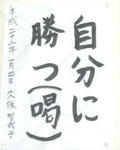 自分に
勝つ(喝)
平成二十二年 一月四日 久保